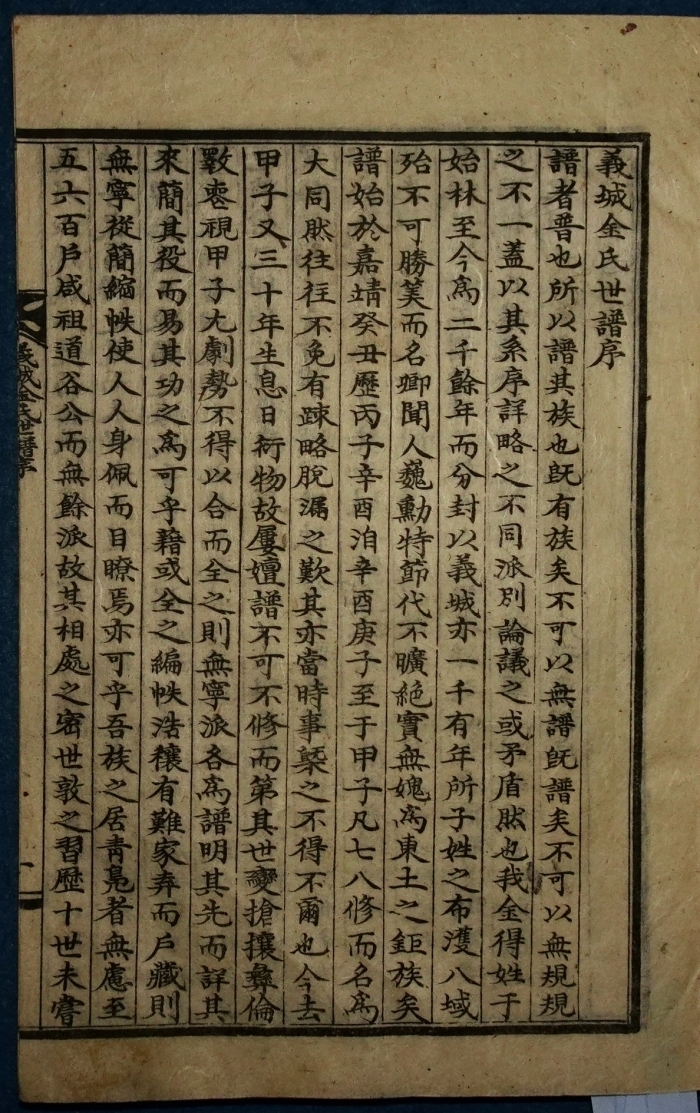 義城金氏世譜序
譜者普也所以譜其族也旣有族矣不可以無譜旣譜矣不可以無規規
之不一盖以其系序詳略之不同派別論議之或矛盾然也我金得姓于
始林至今爲二千餘年而分封以義城亦一千有年所子姓之布濩八域
殆不可勝筭而名卿聞人巍勳特節代不曠絶實無媿爲東土之鉅族矣
譜始於嘉靖癸丑歷丙子辛酉洎辛酉庚子至于甲子凡七八修而名爲
大同然往往不免有踈略脫漏之歎其亦當時事槩之不得不爾也今去
甲子又三十年生息日衍物故屢嬗譜不可不修而第其世變搶攘彝倫
斁喪視甲子尤劇勢不得以合而全之則無寧派各爲譜明其先而詳其
來簡其役而易其功之爲可乎藉或全之編帙浩穰有難家弆而戶藏則
無寧從簡縮帙使人人身佩而目瞭焉亦可乎吾族之居靑鳧者無慮至
五六百戶咸祖道谷公而無餘派故其相處之密世敦之習歷十世未嘗
義城金氏世譜序
一